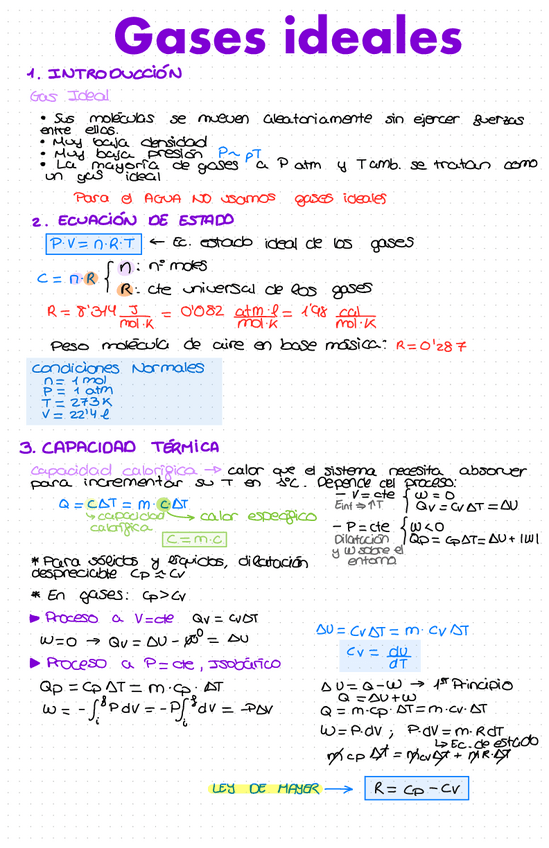 Gases ideales
1. INTRODUCCIÓN
Gas Ideal
• Sus moléculas se mueven aleatoriamente sin ejercer fuerzas
entre ellas.
• Muy baja densidad
• Muy baja presión P~ρT
• La mayoría de gases a P atm y T amb. se tratan como
un gas ideal
Para el AGUA NO usamos gases ideales
2. ECUACIÓN DE ESTADO
P·V = n·R·T ← Ec. estado ideal de los gases
C = n·R { n: nº moles
R: cte universal de los gases
R = 8'314 J/mol·K = 0'082 atm·l/mol·K = 1'98 cal/mol·K
Peso molécula de aire en base másica: R=0'287
Condiciones Normales
n = 1 mol
P = 1 atm
T = 273K
V = 22'4 l
3. CAPACIDAD TÉRMICA
Capacidad calorífica → calor que el sistema necesita absorver
para incrementar su T en 1ºC. Depende del proceso:
Q = CΔT = m·cΔT
↳ capacidad calorífica
→ calor específico
C = m·c
— V = cte { W = 0
Eint ⇒ ↑T
Qv = CvΔT = ΔU
— P = cte { W<0
Dilatación y W sobre el entorno
Qp = CpΔT = ΔU + |W|
* Para sólidos y líquidos, dilatación
despreciable Cp ≈ Cv
* En gases: Cp > Cv
▶ Proceso a V=cte Qv = CVΔT
W=0 → Qv = ΔU - W⁰ = ΔU
▶ Proceso a P=cte, Isobárico
Qp = Cp ΔT = m·cp·ΔT
W = -∫ᵢᶠ P dV = -P∫ᵢᶠ dV = -PΔV
ΔU = CvΔT = m·cvΔT
Cv = dU/dT
ΔU = Q - W → 1er Principio
Q = ΔU + W
Q = m·cp·ΔT = m·cv·ΔT
W = P·dV ; P·dV = m·RdT
↳ Ec. de estado
m cp ΔT = m cv ΔT + m R·ΔT
LEY DE MAYER → R = cp - cv